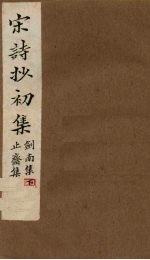 宋詩抄初集
劍南集
止齋集